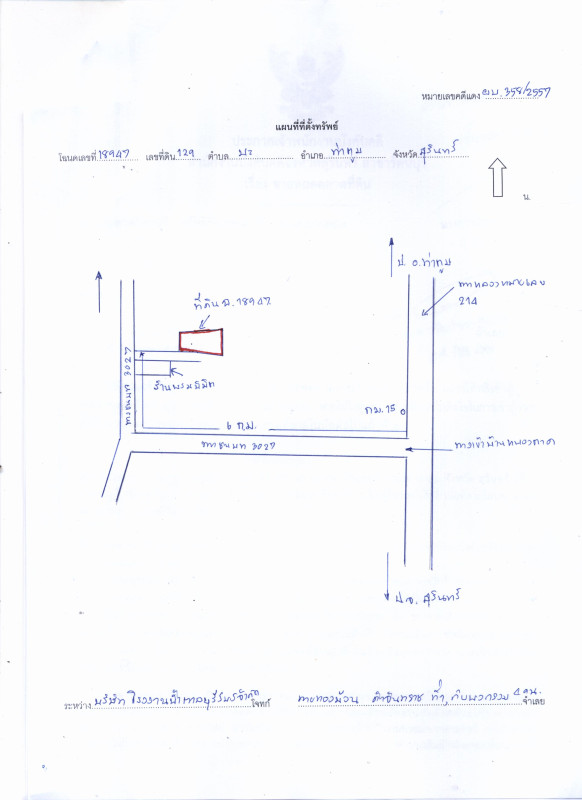 หมายเลขคดีแดง ผบ. 358/2557
แผนที่ที่ตั้งทรัพย์
โฉนดเลขที่ 18947 เลขที่ดิน 129 ตำบล บะ อำเภอ ท่าตูม จังหวัด สุรินทร์
น.
ไป อ.ท่าตูม
ทางหลวงหมายเลข
214
ที่ดิน ฉ.18947
ทางชนบท 3027
ร้านพรนิมิต
กม.15
6 กม.
ทางชนบท 3027
ทางเข้าบ้านหนองตาด
ไป จ. สุรินทร์
ระหว่าง บริษัท โรงงานน้ำตาลบุรีรัมย์ จำกัด โจทก์
นายทองม้วน ที่ 1 กับพวกรวม 4 คน จำเลย